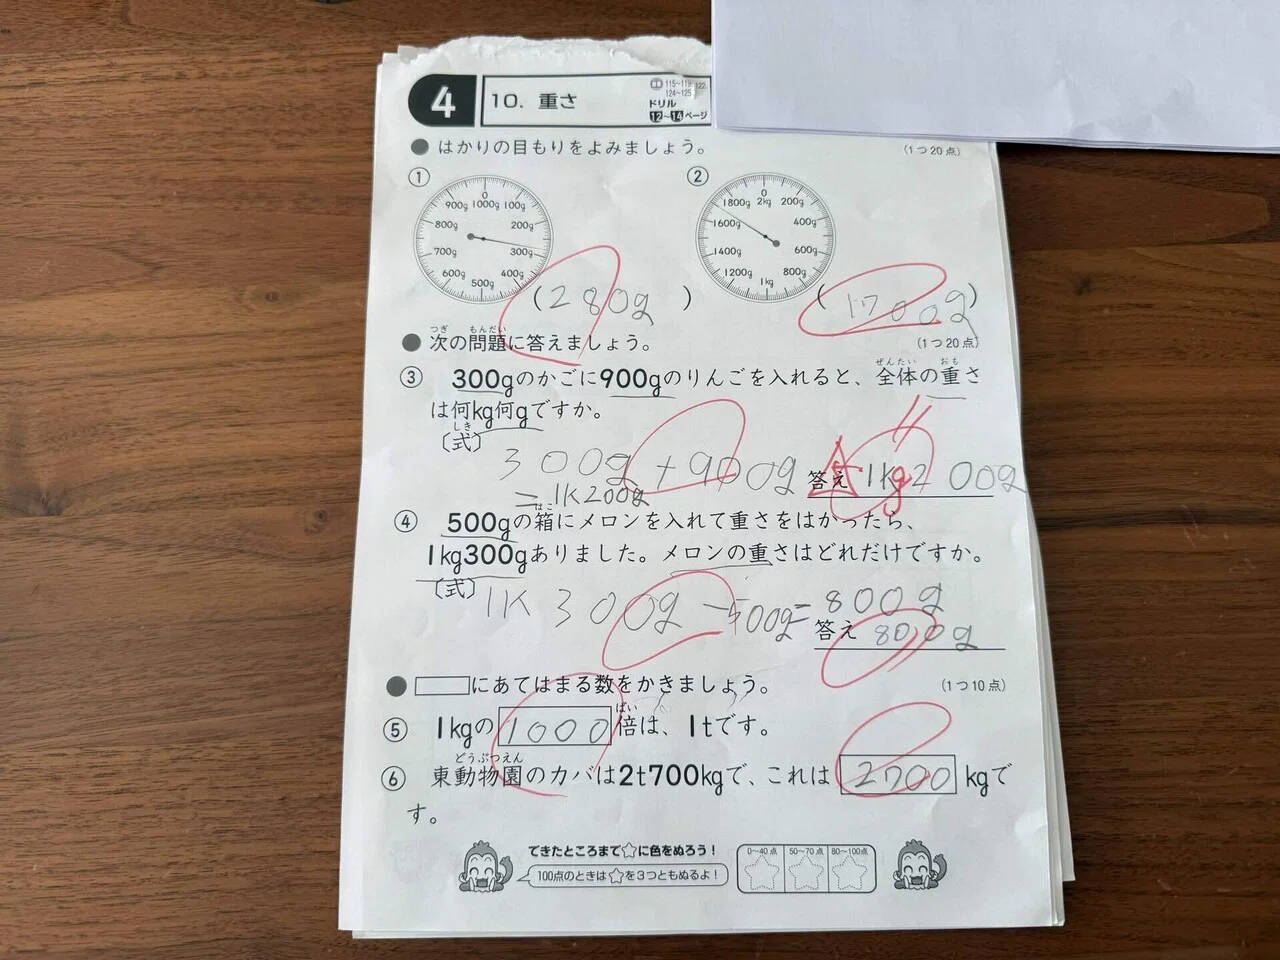 4 10. 重さ
115~119, 122,
124~125
ドリル
12~14ページ
●はかりの目もりをよみましょう。 (1つ20点)
① ②
0 1000g 100g 200g 300g 400g 500g 600g 700g 800g 900g
0 2kg 200g 400g 600g 800g 1kg 1200g 1400g 1600g 1800g
(280g) (1700g)
つぎ もんだい
●次の問題に答えましょう。 (1つ20点)
ぜんたい おも
③ 300gのかごに900gのりんごを入れると、全体の重さ
は何kg何gですか。
しき
〔式〕
300g+900g 答え 1kg200g
=1K200g
はこ
④ 500gの箱にメロンを入れて重さをはかったら、
1kg300gありました。メロンの重さはどれだけですか。
〔式〕 1K300g-500g=800g
答え 800g
●□にあてはまる数をかきましょう。 (1つ10点)
ばい
⑤ 1kgの1000倍は、1tです。
どうぶつえん
⑥ 東動物園のカバは2t700kgで、これは2700kgで
す。
できたところまで☆に色をぬろう!
100点のときは☆を3つともぬるよ!
0~40点 50~70点 80~100点